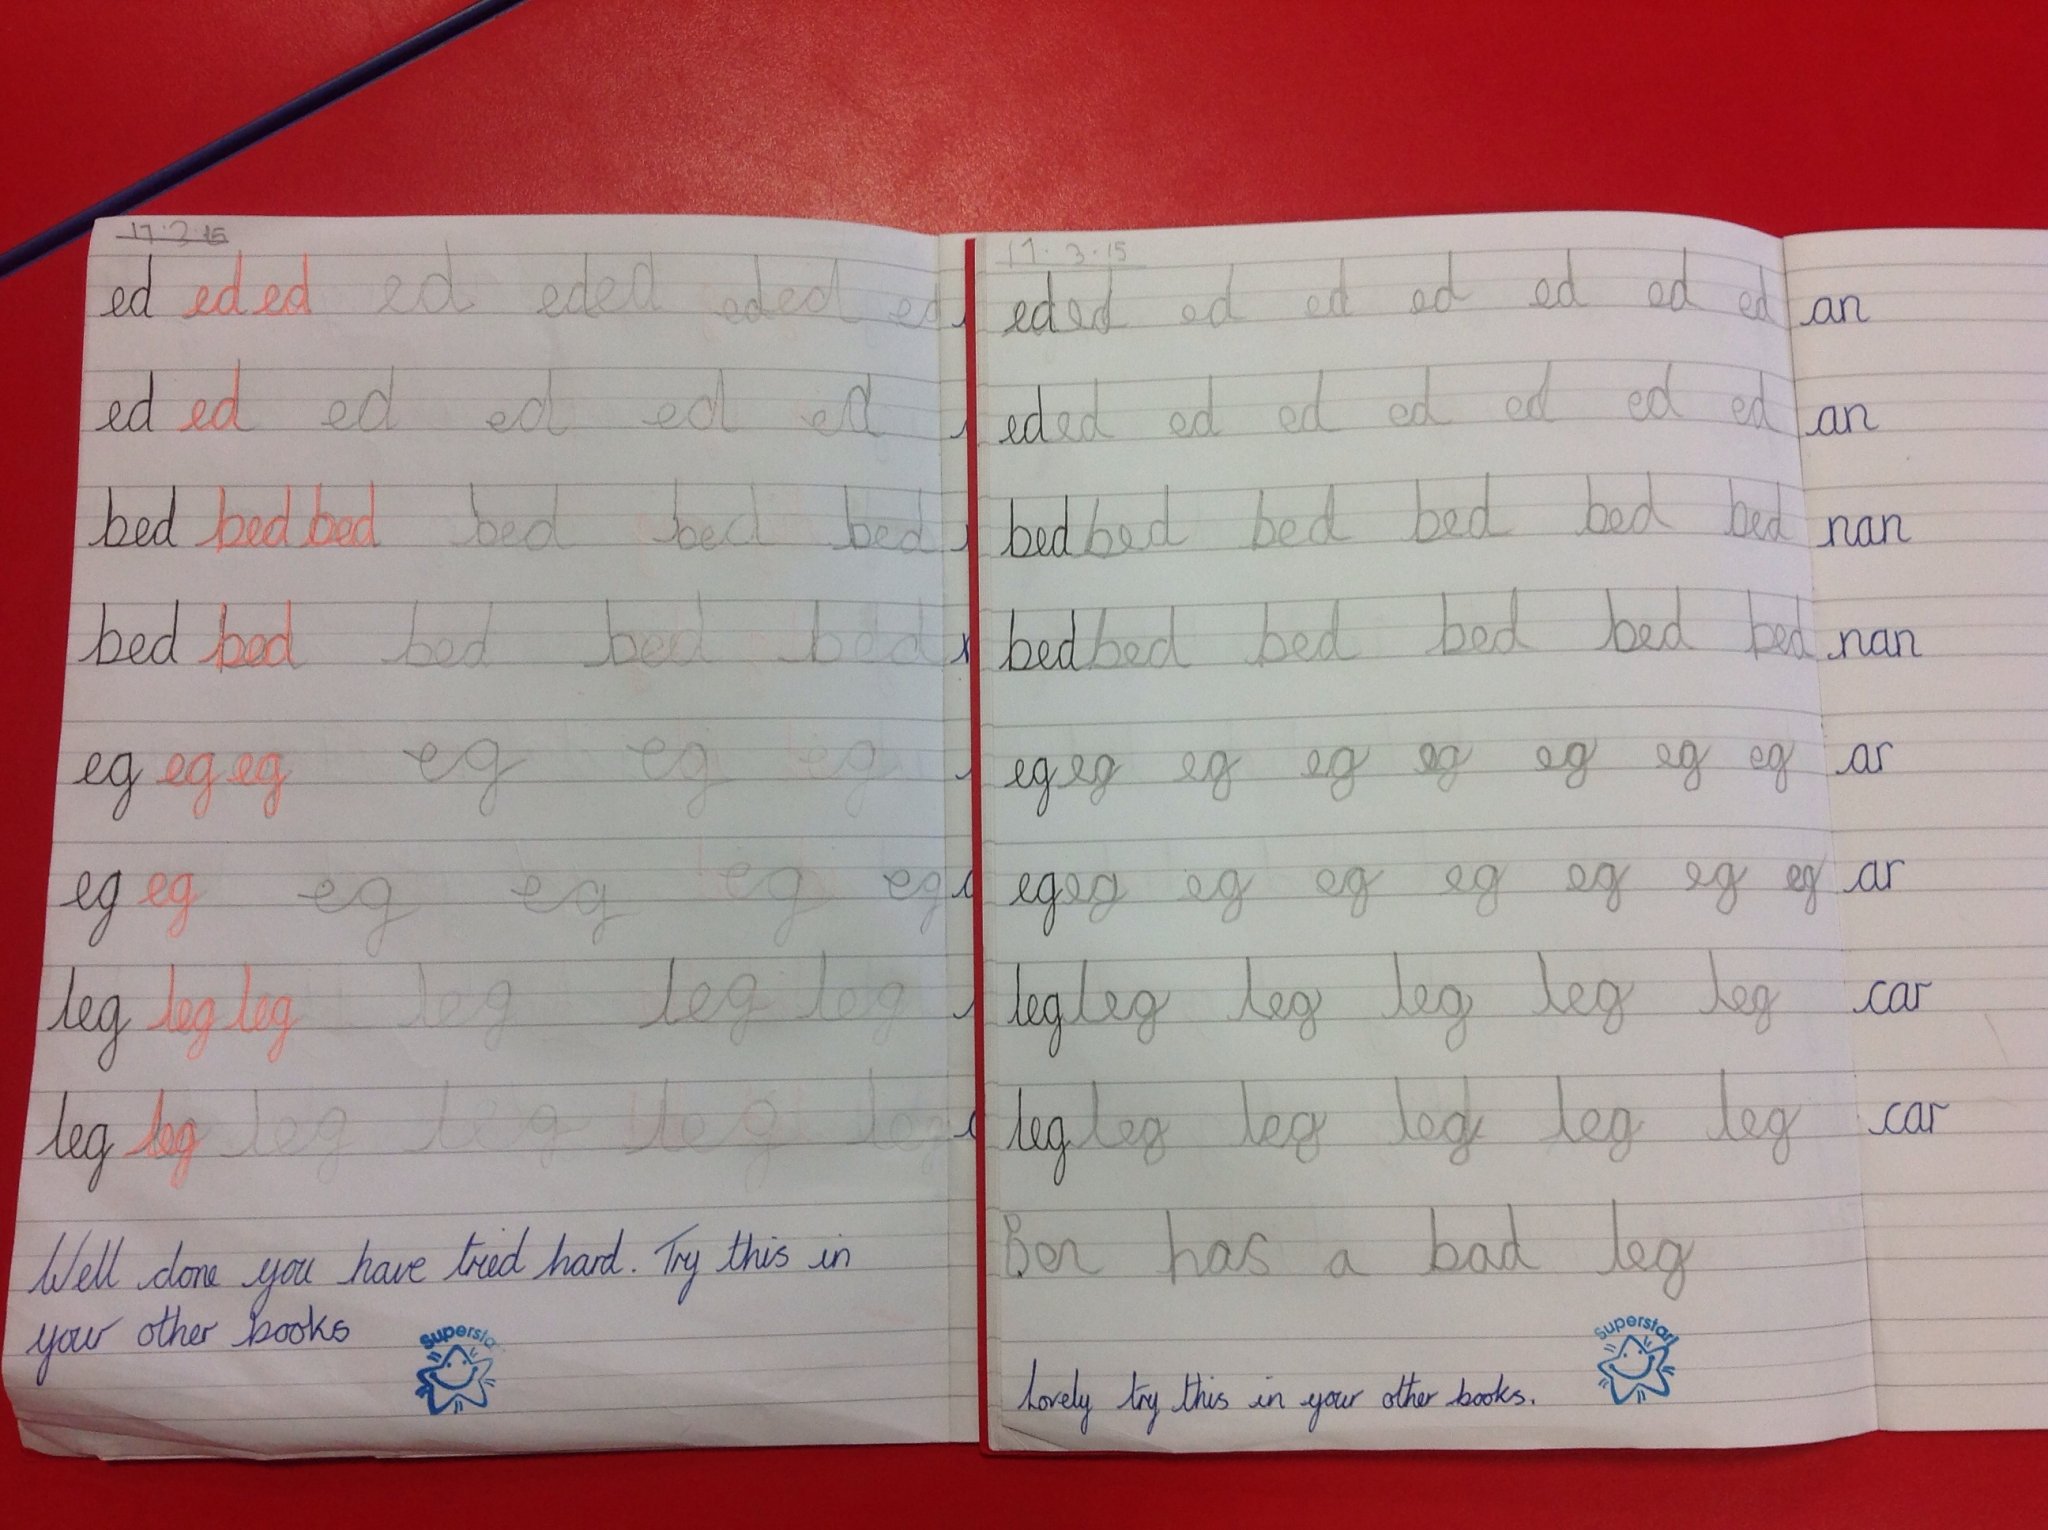 17.3.15
ed ed ed ed ed ed ed ed ed
ed ed ed ed ed ed
bed bed bed bed bed bed
bed bed bed bed bed
eg eg eg eg eg eg
eg eg eg eg eg eg
leg leg leg leg leg leg
leg leg leg leg leg leg
Well done you have tried hard. Try this in
your other books
Superstar
17.3.15
ed ed ed ed ed ed ed ed
ed ed ed ed ed ed ed ed
bed bed bed bed bed bed
bed bed bed bed bed bed
eg eg eg eg eg eg eg eg
eg eg eg eg eg eg eg eg
leg leg leg leg leg leg
leg leg leg leg leg leg
Ben has a bad leg
Superstar!
Lovely try this in your other books.
an
an
nan
nan
ar
ar
car
car